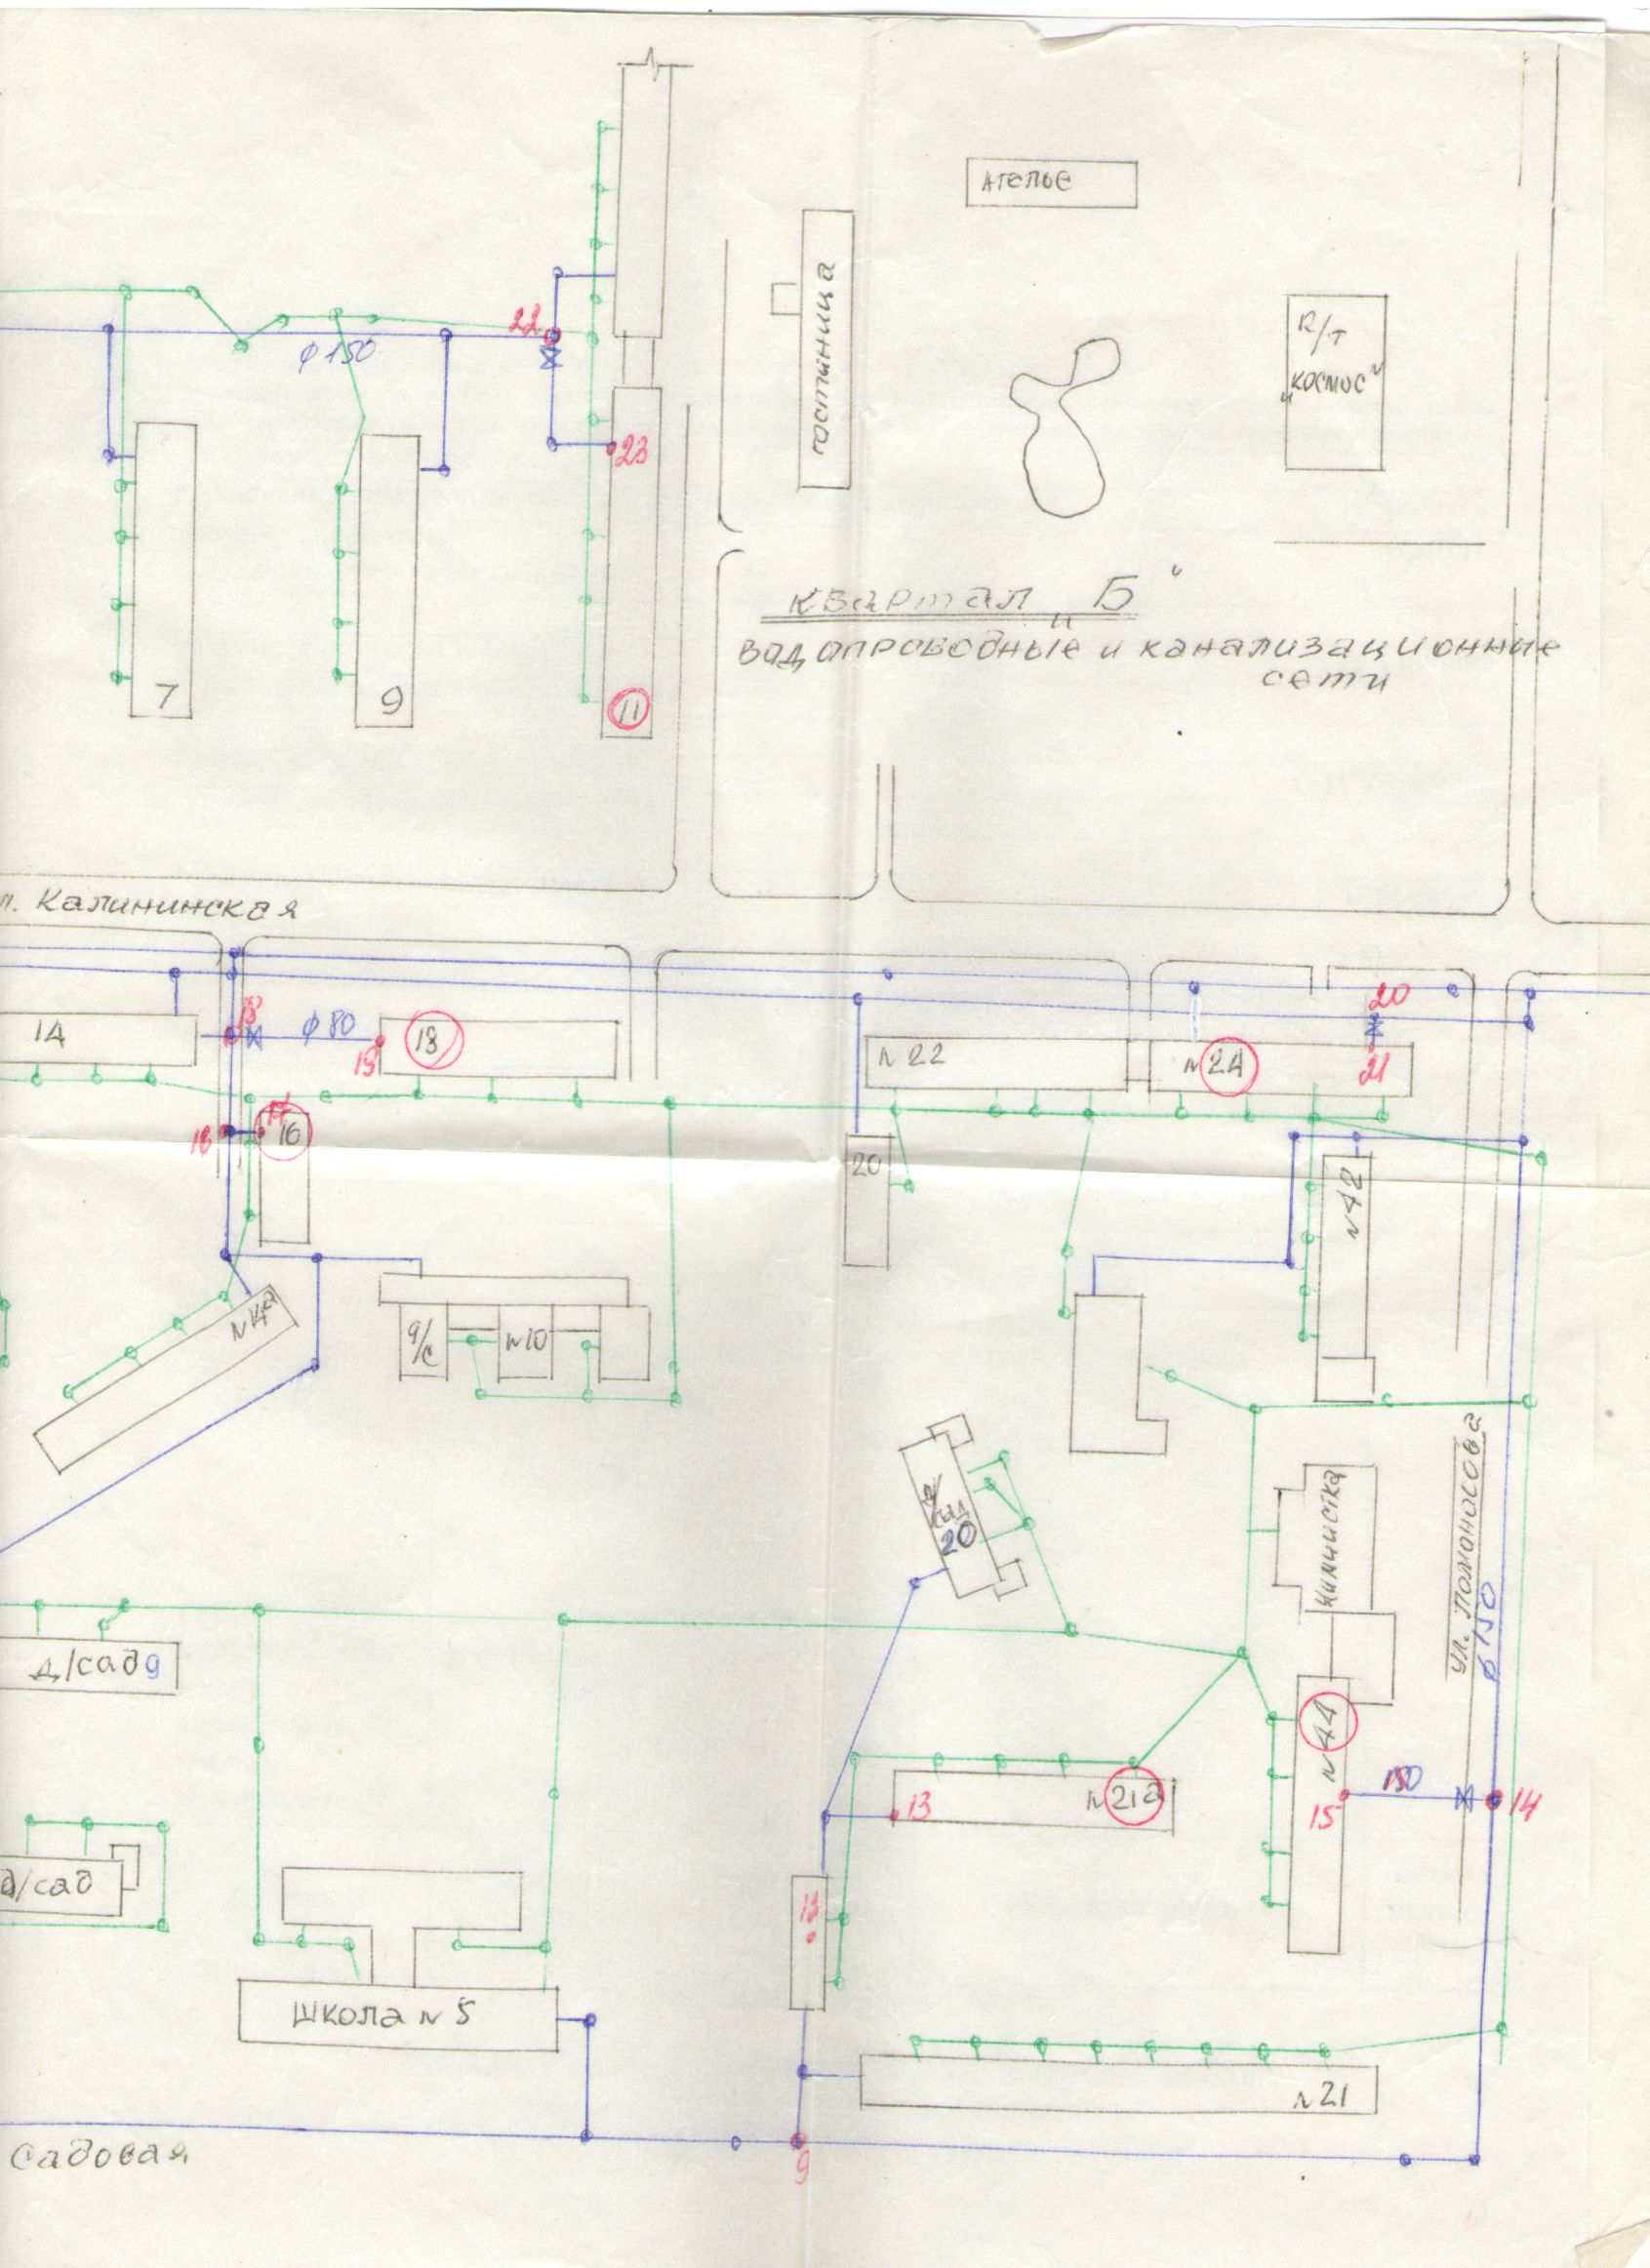 ателье
гостиница
к/т
"космос"
22
ø 150
23
квартал "Б"
водопроводные и канализационные
сети
7
9
11
л. Калининская
14
18
ø 80
18
19
20
N 22
N 24
21
17
16
16
20
N 42
N 14а
д/с
N 10
д/сад
20
химчистка
ул. Ломоносова
ø 150
д/сад 9
N 44
150
14
15
13
N 21а
д/сад
Школа N 5
N 21
Садовая
9